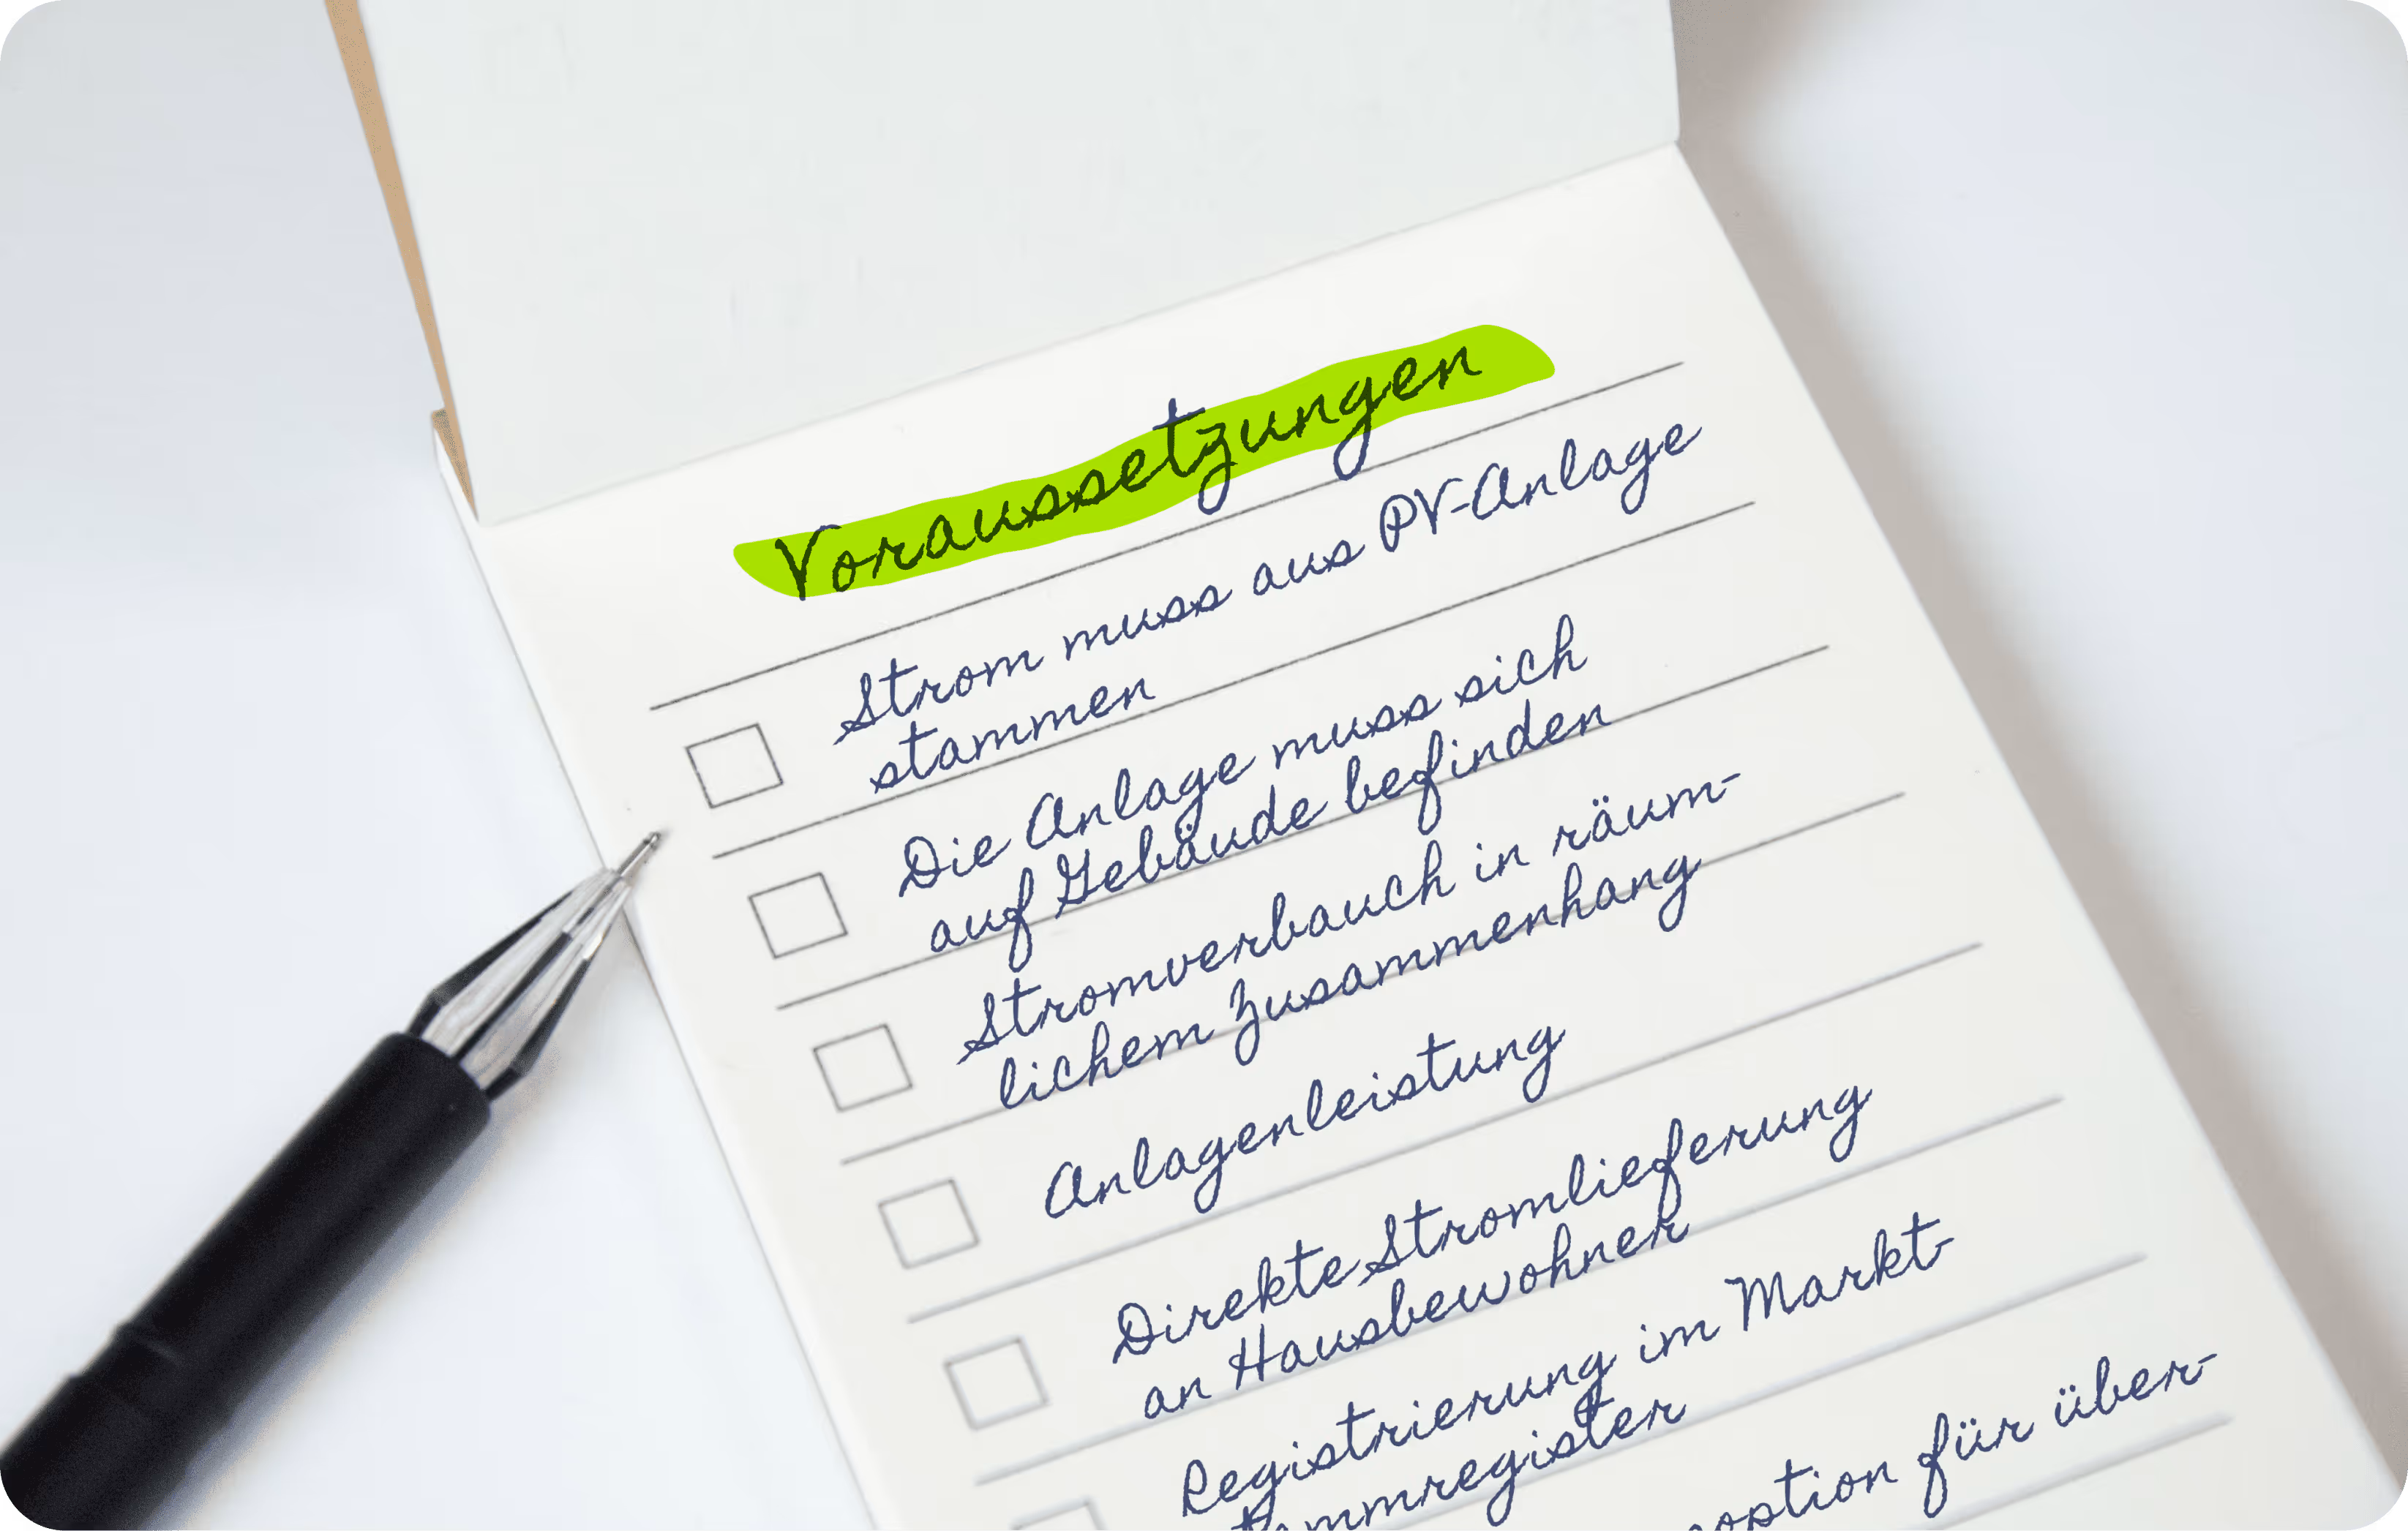 Voraussetzungen
Strom muss aus PV-Anlage
stammen
Die Anlage muss sich
auf Gebäude befinden
Stromverbauch in räum-
lichem Zusammenhang
Anlagenleistung
Direkte Stromlieferung
an Hausbewohner
Registrierung im Markt-
für über-